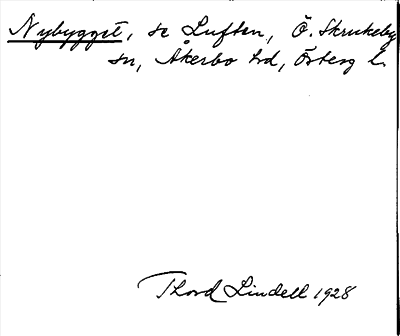 Nybygget, se Luften, Ö. Skrukeby
sn, Åkerbo hd, Österg l.
Thord Lindell 1928